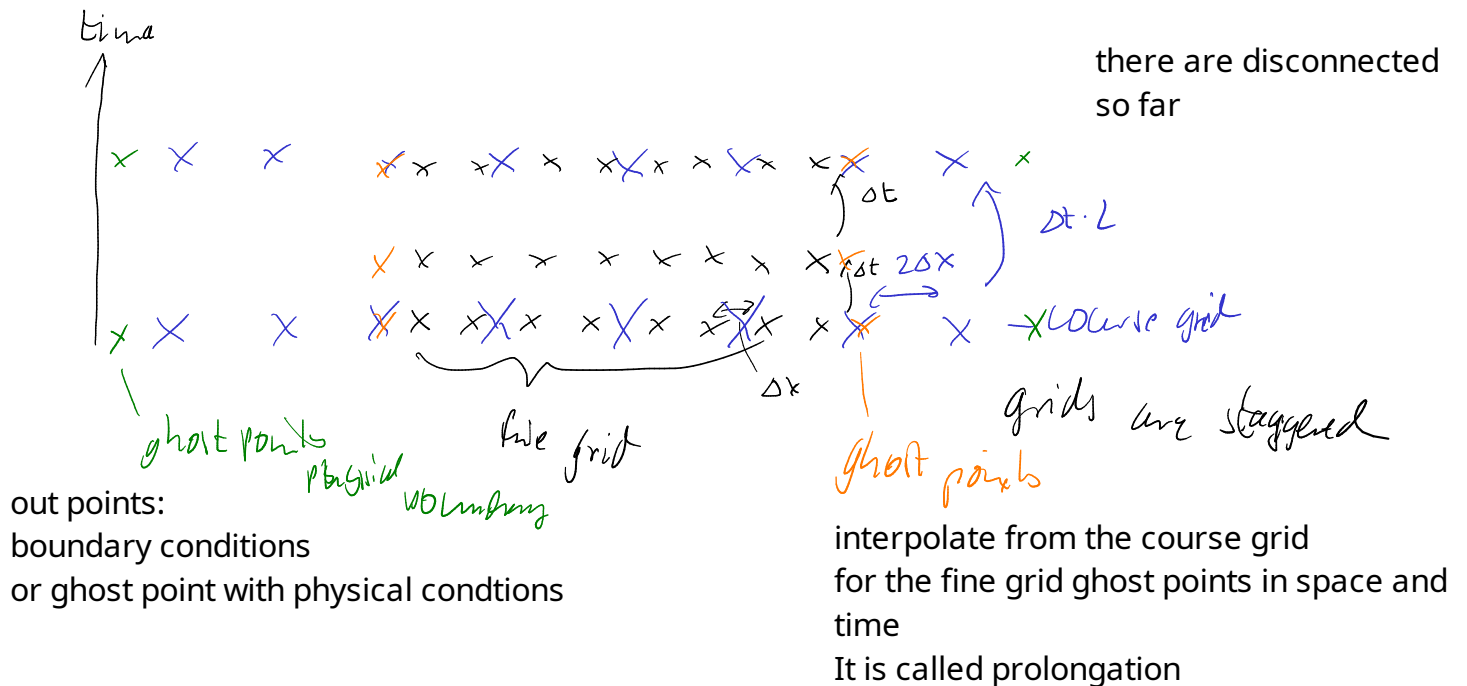 time
there are disconnected
so far
Δt
Δt · 2
Δt
2Δx
course grid
Δx
grids are staggered
ghost points
physical boundary
fine grid
ghost points
out points:
boundary conditions
or ghost point with physical condtions
interpolate from the course grid
for the fine grid ghost points in space and
time
It is called prolongation